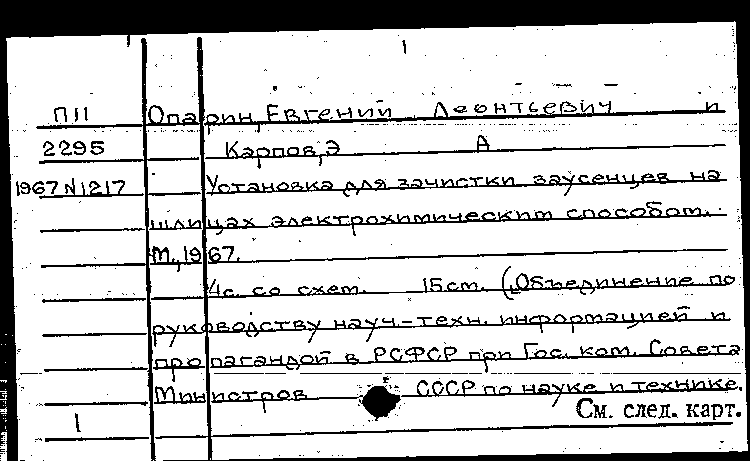 1
П11 Опарин, Евгений Леонтьевич и
2295 Карпов, Э А
1967 N1217 Установка для зачистки заусенцев на
шлицах электрохимическим способом.
М., 1967.
4с. со схем. 15см. (Объединение по
руководству науч-техн. информацией и
пропагандой в РСФСР при Гос. ком. Совета
Министров СССР по науке и технике.
См. след. карт.
1